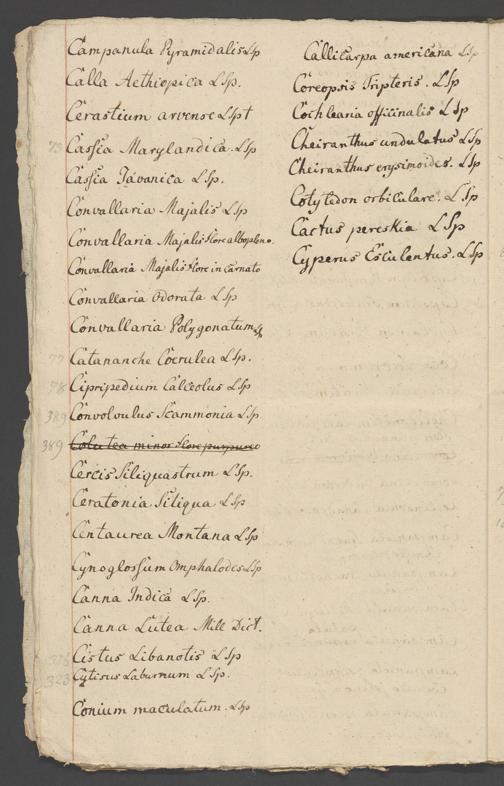 Campanula Pyramidalis LSp
Calla Aethiopica L Sp.
Cerastium arvense LSpt
73 Cassia Marylandica. LSp
Cassia Javanica L Sp.
Convallaria Majalis LSp
Convallaria Majalis flore albopleno.
Convallaria Majalis flore in carnato
Convallaria Odorata L Sp
Convallaria Polygonatum
77 Catananche Coerulea LSp.
78 Cipripedium Calceolus LSp
389 Convolvulus Scammonia LSp
389 Colutea minor flore purpureo
Cercis Siliquastrum LSp.
Ceratonia Siliqua LSp
Centaurea Montana LSp
Cynoglossum Omphalodes LSp
Canna Indica LSp.
Canna Lutea Mill Dict.
Cistus Libanotis LSp
323 Cytisus Laburnum LSp.
Conium maculatum. LSp
Callicarpa americana LSp
Coreopsis Tripteris. LSp
Cochlearia officinalis LSp
Cheiranthus undulatus LSp
Cheiranthus erysimoides. LSp
Cotyledon orbiculare. LSp
Cactus pereskia LSp
Cyperus Esculentus. LSp